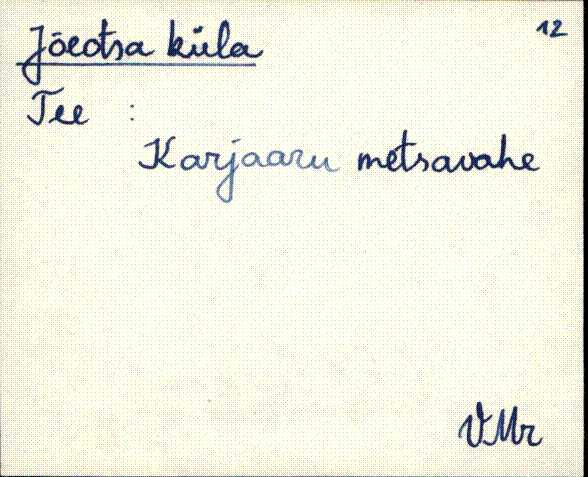 Jõeotsa küla
12
Tee :
Karjaaru metsavahe
VMr